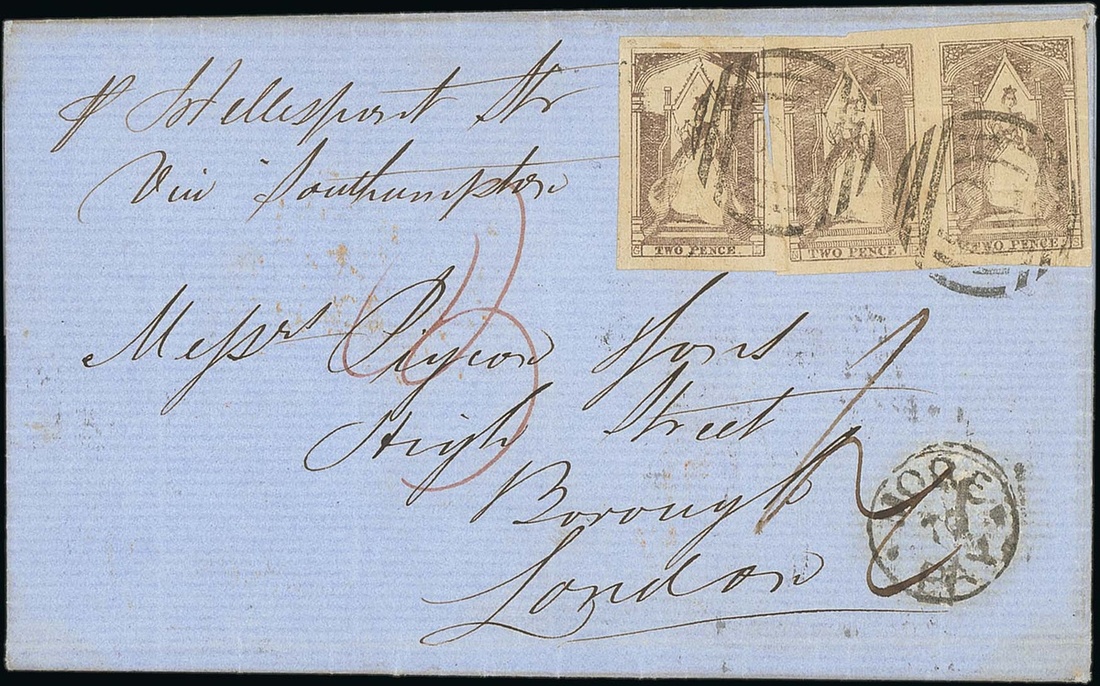 ℘ Hellespont Str
Via Southampton
TWO PENCE
TWO PENCE
TWO PENCE
Messrs Pigeon Sons
High Street
Borough
London
MORE
PAY